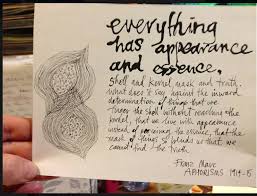 everything
has appearance
and essence.
Shell and kernel, mask and truth.
what does it say against the inward
determination of things that we
finger the shell without reaching the
kernel, that we live with appearance
instead of perceiving the essence, that the
mask of things so blinds us that we
cannot find the truth.
Franz Marc
APHORISMS 1914-15